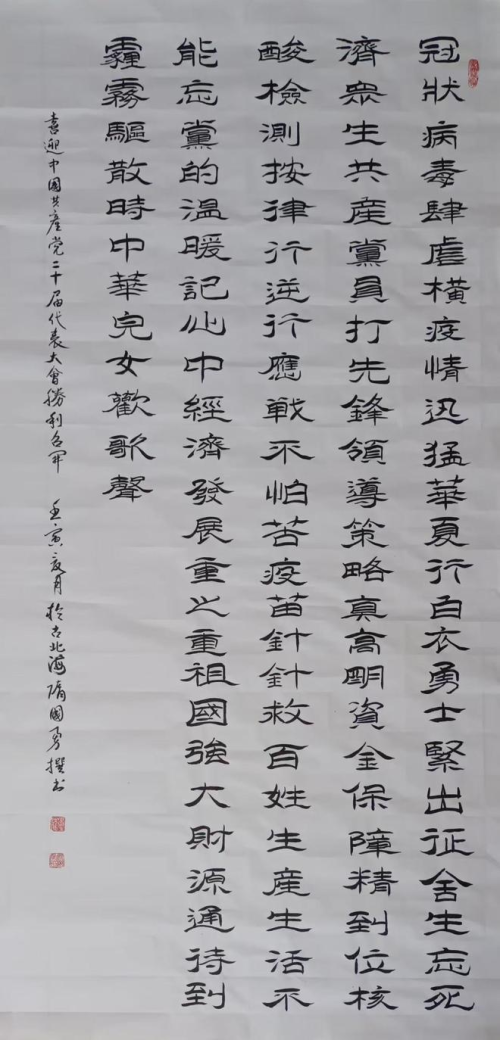 冠狀病毒肆虐橫疫情迅猛華夏行白衣勇士緊出征舍生忘死
濟衆生共産黨員打先鋒領導策略真高明資金保障精到位核
酸檢測按律行逆行應戰不怕苦疫苗針針救百姓生産生活不
能忘黨的溫暖記心中經濟發展重之重祖國強大財源通待到
霾霧驅散時中華兒女歡歌聲
喜迎中國共產党二十届代表大會勝利召開 壬寅夏月於古北海隋國勇撰书